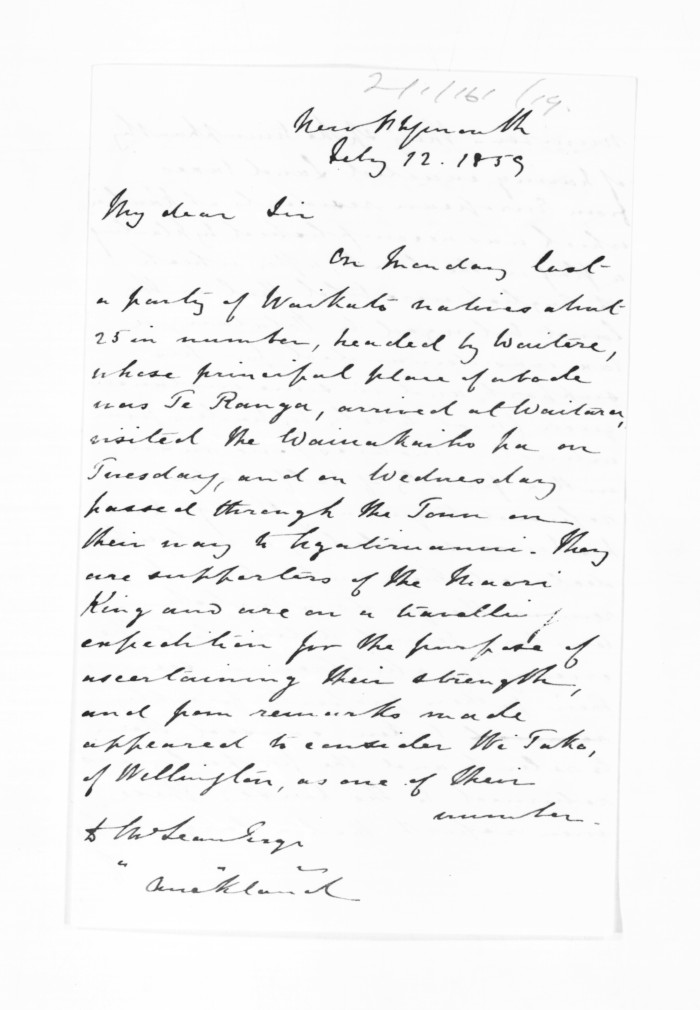 2/1/161/19.
New Plymouth
Feby 12. 1859
My dear Sir
On Monday last
a party of Waikato natives about
25 in number, headed by Waitere,
whose principal place of abode
was Te Ranga, arrived at Waitara,
visited the Waiwakaiho pa on
Tuesday, and on Wednesday
passed through the Town on
their way to Ngatiruanui. They
are supporters of the Maori
King and are on a travelling
expedition for the purpose of
ascertaining their strength,
and from remarks made
appeared to consider Wi Tako,
of Wellington, as one of their
number.
D McLean Esqr
" " "
Auckland